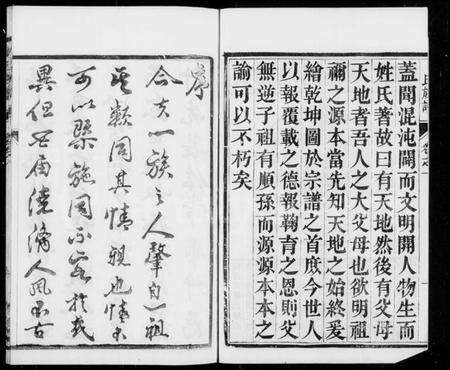 氏族譜
卷之一
蓋聞混沌闢而文明開人物生而
姓氏著故曰有天地然後有父母
天地者吾人之大父母也欲明祖
禰之源本當先知天地之始終爰
繪乾坤圖於宗譜之首庶今世人
以報覆載之德報鞠育之恩則父
無逆子祖有順孫而源源本本之
諭可以不朽矣
序
合夫一族之人肇自一祖
其欸同其情親也情
可以
異但
人風
古